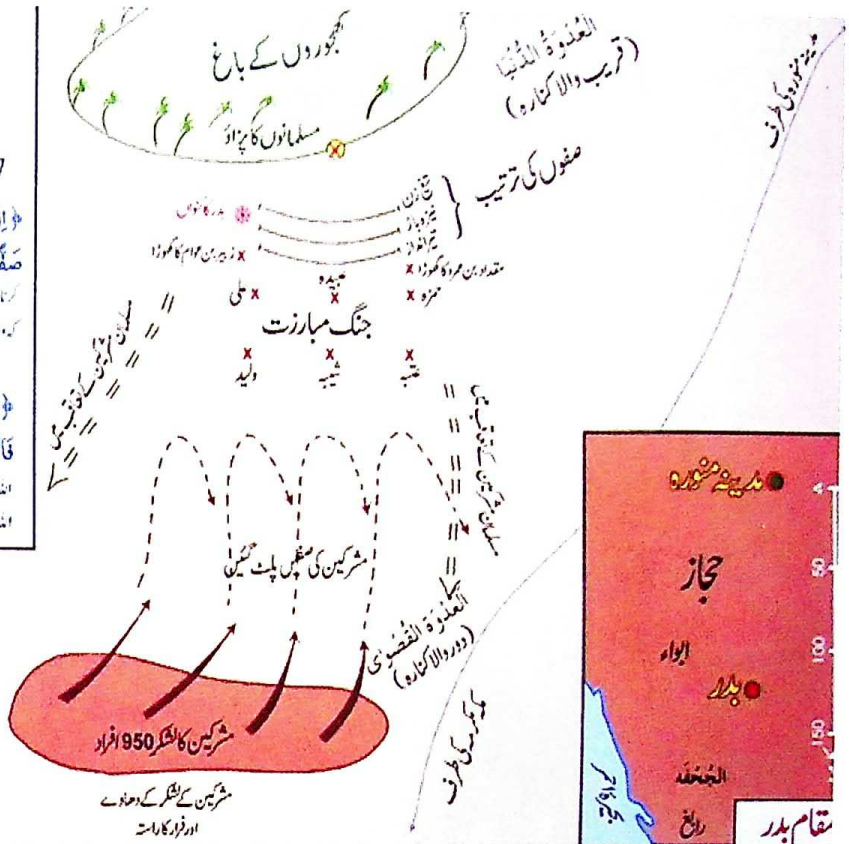 کھجوروں کے باغ
مسلمانوں کا پڑاؤ
العُدْوَۃُ الدُّنْیَا
(قریب والا کنارہ)
مدینہ منورہ کی طرف
صفوں کی ترتیب
تیغ زن
نیزہ باز
تیر انداز
بدر کا کنواں
زبیر بن عوام کا گھوڑا
مقداد بن عمرو کا گھوڑا
علی
عبیدہ
حمزہ
جنگ مبارزت
ولید
شیبہ
عتبہ
مسلمان مشرکین کے تعاقب میں
مسلمان مشرکین کے تعاقب میں
مشرکین کی صفیں پلٹ گئیں
العُدْوَۃُ القُصْوٰی
(دور والا کنارہ)
مشرکین کا لشکر 950 افراد
مشرکین کے لشکر کے دھاوے
اور فرار کا راستہ
مکہ مکرمہ کی طرف
مدینہ منورہ
حجاز
ابواء
بدر
الجُحْفَہ
رابغ
مقام بدر
50
100
150